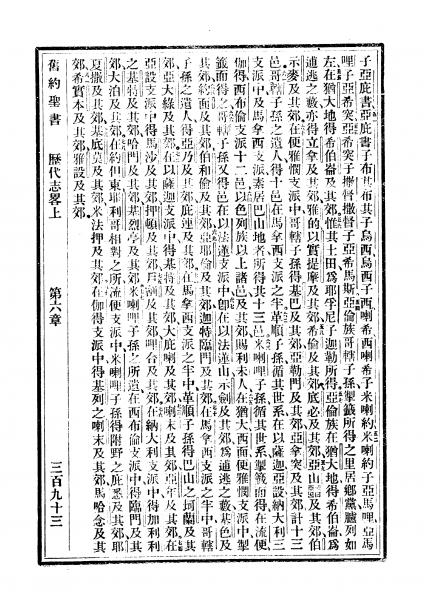 子亞庇書亞庇書子布其布其子烏西烏西子西喇希西喇希子米喇約米喇約子亞馬哩亞馬
哩子亞希突亞希突子撒督撒督子亞希馬斯亞倫族哥轄子孫掣籤所得之里居鄉黨臚列如
左在猶大地得希伯崙及其郊惟其土田爲耶孚尼子迦勒所得亞倫族在猶大地得希伯崙爲
逋逃之藪亦得立拿及其郊雅的以實提摩及其郊希倫及其郊底必及其郊亞山及其郊伯
示麥及其郊在便雅憫支派中哥轄子孫得基巴及其郊亞勒門及其郊亞拿突及其郊計十三
邑哥轄子孫之遺人得十邑在馬拿西支派之半革順子孫循其世系在以薩迦亞設納大利三
支派中及馬拿西支派素居巴山地者所得共十三邑米喇哩子孫循其世系掣籤而得在流便
伽得西布倫支派十二邑以色列族以上諸邑及其郊賜利未人在猶大西面便雅憫支派中掣
籤而得之哥轄子孫又得邑在以法蓮支派中卽在以法蓮山示劍及其郊爲逋逃之藪基色及
其郊約面及其郊伯和倫及其郊亞耶倫及其郊迦特臨門及其郊在馬拿西支派之半中哥轄
子孫之遺人得亞乃及其郊庇連及其郊在馬拿西支派之半中革順子孫得巴山之坷蘭及其
郊亞大綠及其郊在以薩迦支派中得基特及其郊大庇喇及其郊喇末及其郊亞年及其郊在
亞設支派中得馬沙及其郊押頓及其郊及其郊哩合及其郊在納大利支派中得加利利
之基特及其郊哈門及其郊基烈亭及其郊米喇哩子孫之所遺在西布倫支派中得臨門及其
郊大泊及其郊在約但東耶利哥相對之所流便支派中米喇哩子孫得附野之庇悉及其郊耶
夏撒及其郊基底莫及其郊米法押及其郊在伽得支派中得基列之喇末及其郊馬哈念及其
郊希實本及其郊雅設及其郊
舊約聖書 歷代志畧上 第六章 三百九十三